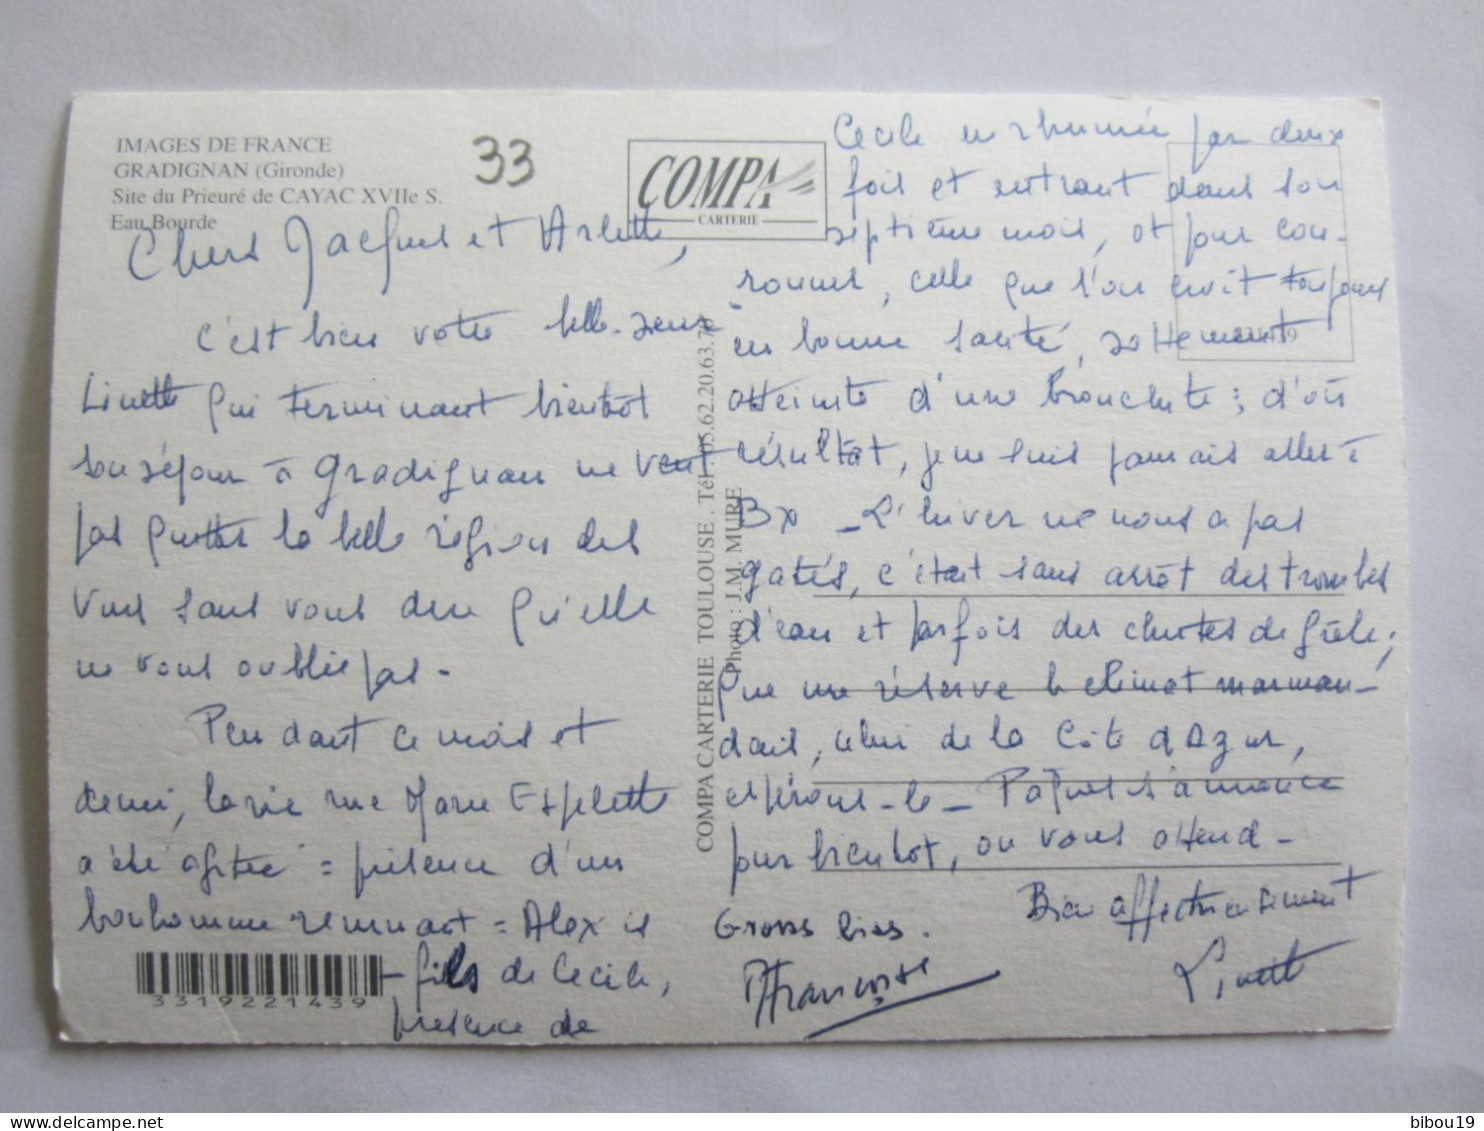 IMAGES DE FRANCE
GRADIGNAN (Gironde)
Site du Prieuré de CAYAC XVIIe S.
Eau Bourde
33
COMPA
CARTERIE
Chers Jacques et Arlette,
c'est bien votre belle-soeur
Linette qui terminant bientôt
son séjour à Gradignan ne veut
pas quitter la belle région des
vins sans vous dire qu'elle
ne vous oublie pas -
Pendant ce mois et
demi, la vie rue
a été agitée = présence d'un
bonhomme remuant = Alex le
fils de Cécile,
présence de
3319221439
COMPA CARTERIE TOULOUSE . Tél : 05.62.20.63.7
Photo : J.M. MURE
Cécile enrhumée par deux
fois et entrant dans son
septième mois, et pour cou-
ronner, celle que l'on croit toujours
en bonne santé, sottement
atteinte d'une bronchite ; d'où
résultat, je ne suis jamais allée à
Bx - L'hiver ne nous a pas
gatés, c'était sans arrêt des trombes
d'eau et parfois des chutes de grêle ;
que me réserve le climat marman-
dais, celui de la Côte d'Azur,
espérons-le - Paques s'annonce
pour bientôt, on vous attend -
Bien affectueusement
Linette
Gross bises .
Françoise